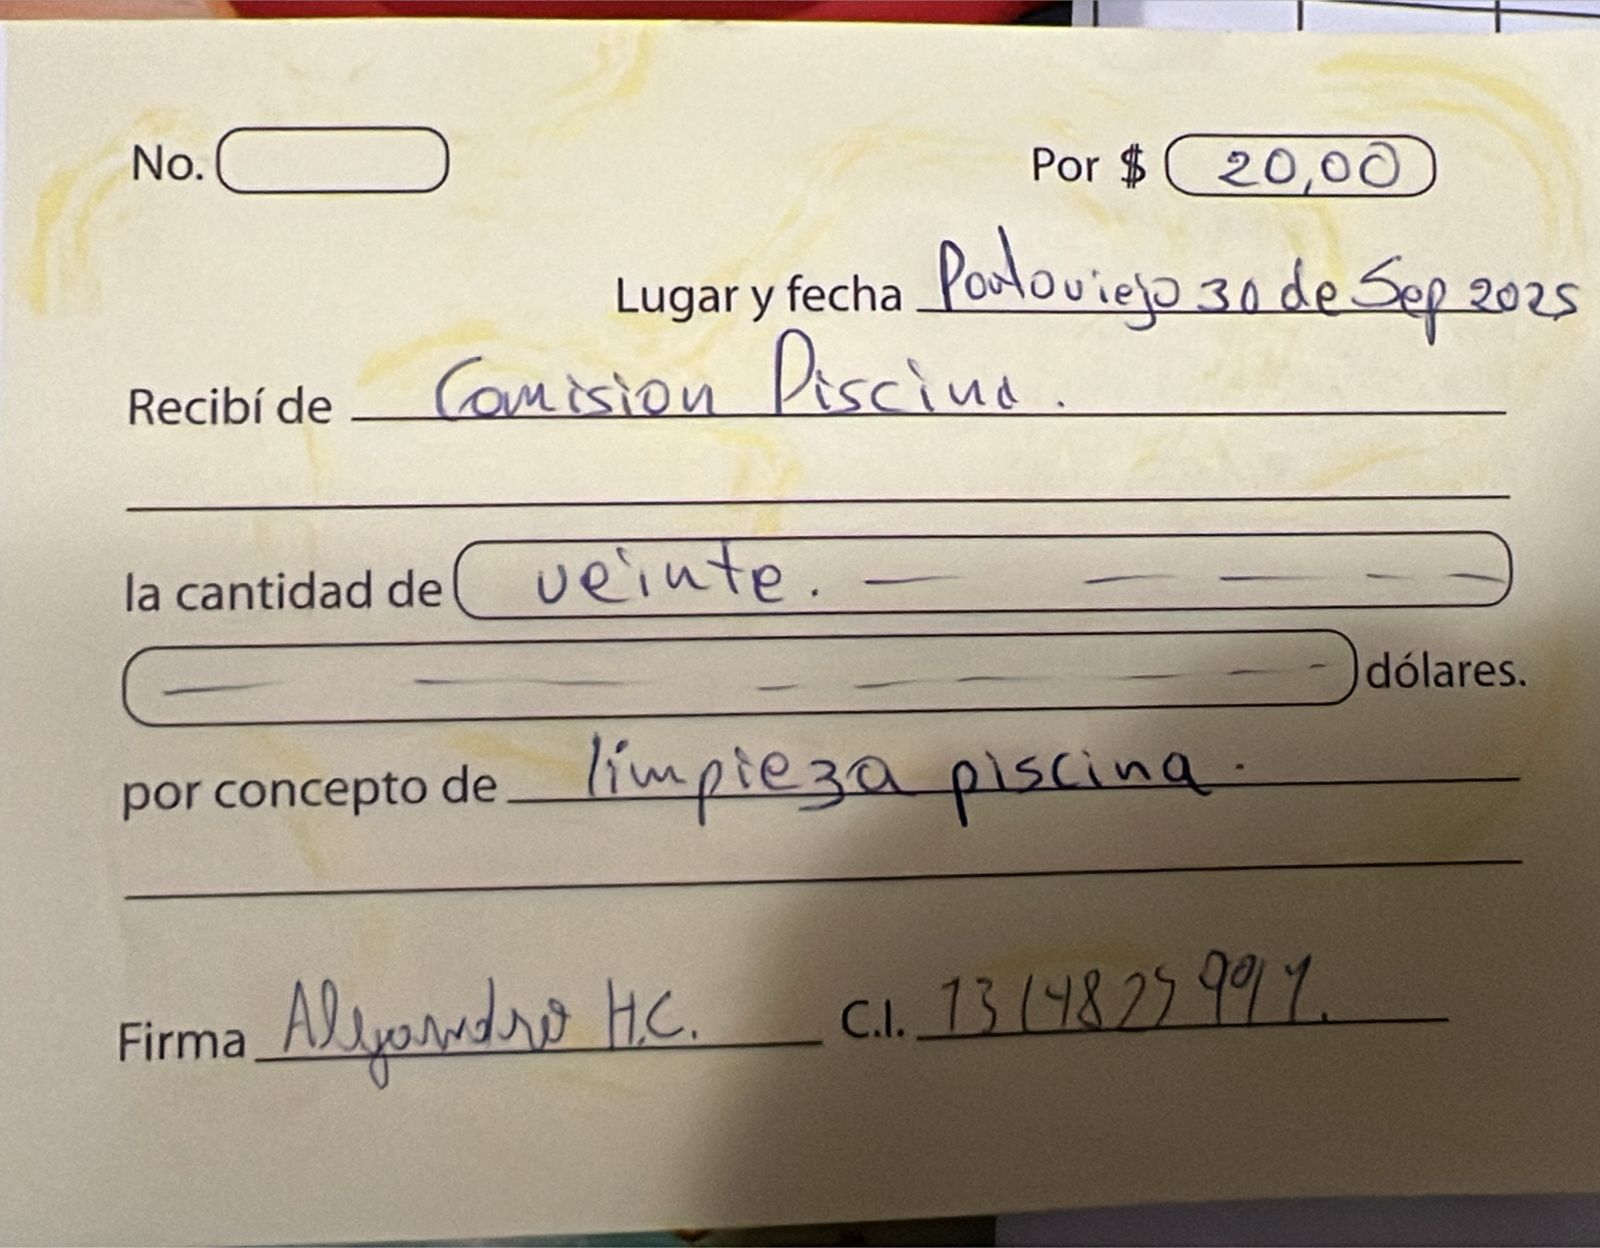 No. Por $ 20,00
Lugar y fecha Portoviejo 30 de Sep 2025
Recibí de Comision Piscina.
la cantidad de veinte. — — — — —
— — — — — — — — dólares.
por concepto de limpieza piscina.
Firma Alejandro H.C. C.I.